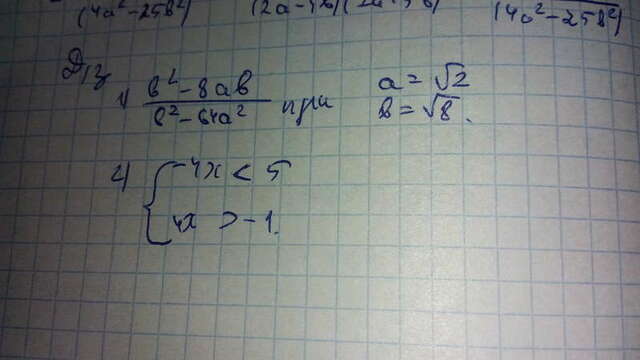 (4a²-25b²) (4a²-25b²)
Д/з
1) b²-8ab / b²-64a² при a = √2
b = √8.
2) { -4x < 5
4x > -1.